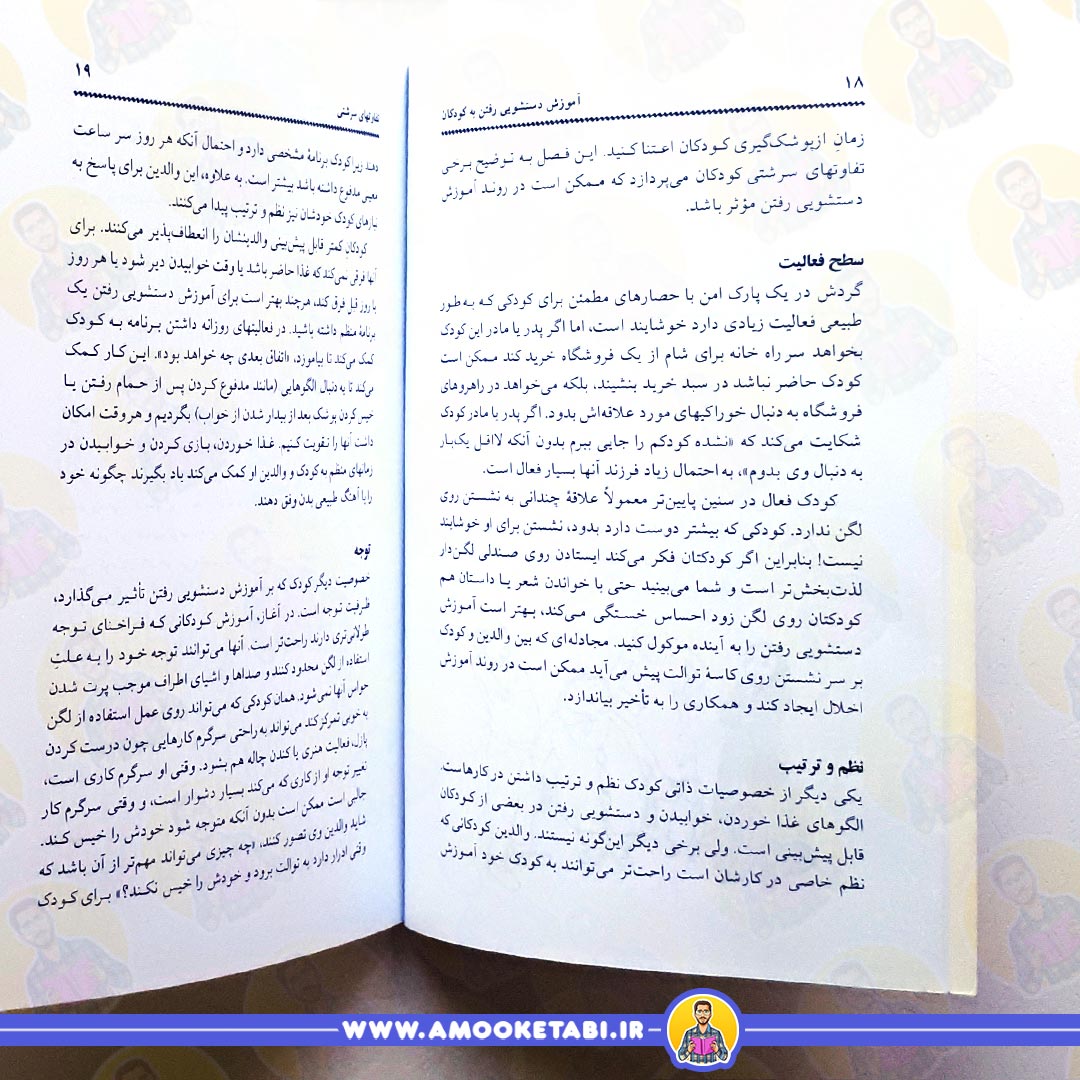 ۱۸
آموزش دستشویی رفتن به کودکان
زمانِ ازپوشک‌گیری کودکان اعتنا کنید. این فصل به توضیح برخی
تفاوتهای سرشتی کودکان می‌پردازد که ممکن است در روند آموزش
دستشویی رفتن مؤثر باشد.
سطح فعالیت
گردش در یک پارک امن با حصارهای مطمئن برای کودکی که به‌طور
طبیعی فعالیت زیادی دارد خوشایند است، اما اگر پدر یا مادر این کودک
بخواهد سر راه خانه برای شام از یک فروشگاه خرید کند ممکن است
کودک حاضر نباشد در سبد خرید بنشیند، بلکه می‌خواهد در راهروهای
فروشگاه به دنبال خوراکیهای مورد علاقه‌اش بدود. اگر پدر یا مادر کودک
شکایت می‌کند که «نشده کودکم را جایی ببرم بدون آنکه لااقل یک‌بار
به دنبال وی بدوم»، به احتمال زیاد فرزند آنها بسیار فعال است.
کودک فعال در سنین پایین‌تر معمولاً علاقهٔ چندانی به نشستن روی
لگن ندارد. کودکی که بیشتر دوست دارد بدود، نشستن برای او خوشایند
نیست! بنابراین اگر کودکتان فکر می‌کند ایستادن روی صندلی لگن‌دار
لذت‌بخش‌تر است و شما می‌بینید حتی با خواندن شعر یا داستان هم
کودکتان روی لگن زود احساس خستگی می‌کند، بهتر است آموزش
دستشویی رفتن را به آینده موکول کنید. مجادله‌ای که بین والدین و کودک
بر سر نشستن روی کاسهٔ توالت پیش می‌آید ممکن است در روند آموزش
اخلال ایجاد کند و همکاری را به تأخیر بیاندازد.
نظم و ترتیب
یکی دیگر از خصوصیات ذاتی کودک نظم و ترتیب داشتن در کارهاست.
الگوهای غذا خوردن، خوابیدن و دستشویی رفتن در بعضی از کودکان
قابل پیش‌بینی است. ولی برخی دیگر این‌گونه نیستند. والدین کودکانی که
نظم خاصی در کارشان است راحت‌تر می‌توانند به کودک خود آموزش
۱۹
تفاوتهای سرشتی
دهند زیرا کودک برنامهٔ مشخصی دارد و احتمال آنکه هر روز سر ساعت
معینی مدفوع داشته باشد بیشتر است. به علاوه، این والدین برای پاسخ به
نیازهای کودک خودشان نیز نظم و ترتیب پیدا می‌کنند.
کودکان کمتر قابل پیش‌بینی والدینشان را انعطاف‌پذیر می‌کنند. برای
آنها فرقی نمی‌کند که غذا حاضر باشد یا وقت خوابیدن دیر شود یا هر روز
با روز قبل فرق کند، هرچند بهتر است برای آموزش دستشویی رفتن یک
برنامهٔ منظم داشته باشید. در فعالیتهای روزانه داشتن برنامه به کودک
کمک می‌کند تا بیاموزد، «اتفاق بعدی چه خواهد بود». این کار کمک
می‌کند تا به دنبال الگوهایی (مانند مدفوع کردن پس از حمام رفتن یا
خیس کردن پوشک بعد از بیدار شدن از خواب) بگردیم و هروقت امکان
داشت آنها را تقویت کنیم. غذا خوردن، بازی کردن و خوابیدن در
زمانهای منظم به کودک و والدین او کمک می‌کند یاد بگیرند چگونه خود
را با آهنگ طبیعی بدن وفق دهند.
توجه
خصوصیت دیگر کودک که بر آموزش دستشویی رفتن تأثیر می‌گذارد،
ظرفیت توجه است. در آغاز، آموزش کودکانی که فراخنای توجه
طولانی‌تری دارند راحت‌تر است. آنها می‌توانند توجه خود را به علت
استفاده از لگن محدود کنند و صداها و اشیای اطراف موجب پرت شدن
حواس آنها نمی‌شود. همان کودکی که می‌تواند روی عمل استفاده از لگن
به خوبی تمرکز کند می‌تواند به راحتی سرگرم کارهایی چون درست کردن
پازل، فعالیت هنری یا کندن چاله هم بشود. وقتی او سرگرم کاری است،
تغییر توجه او از کاری که می‌کند بسیار دشوار است، و وقتی سرگرم کار
جالبی است ممکن است بدون آنکه متوجه شود خودش را خیس کند.
شاید والدین وی تصور کنند، «چه چیزی می‌تواند مهم‌تر از آن باشد که
وقتی ادرار دارد به توالت برود و خودش را خیس نکند؟» برای کودک
WWW.AMOOKETABI.IR